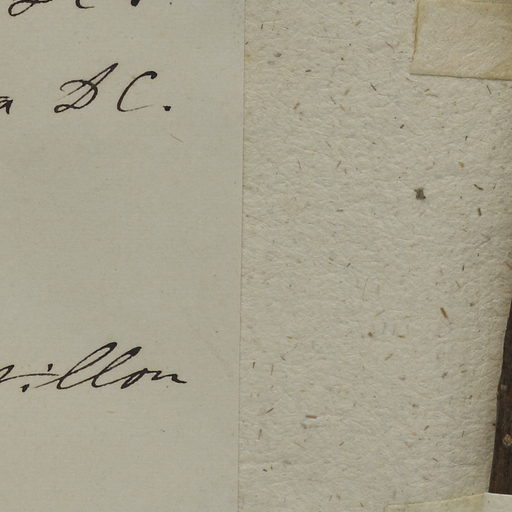 DC.
a DC.
illon